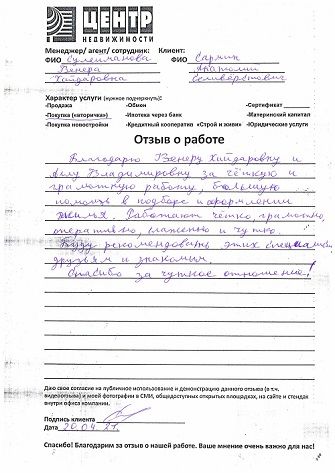 ЦЕНТР
НЕДВИЖИМОСТИ
Менеджер/ агент/ сотрудник: Клиент:
ФИО Сулейманова ФИО Сармин
Венера Анатолий
Хайдаровна Селиверстович
Характер услуги (нужное подчеркнуть):
-Продажа -Обмен -Сертификат
-Покупка «вторичка») -Ипотека через банк -Материнский капитал
-Покупка новостройки -Кредитный кооператив «Строй и живи» -Юридические услуги
Отзыв о работе
Благодарю Венеру Хайдаровну и
Владимировну за чёткую и
грамотную работу, большую
помощь в подборе и оформлении
жилья. Работают чётко, грамотно,
оперативно, слаженно и чутко.
Буду рекомендовать этих специали
друзьям и знакомым.
Спасибо за чуткое отношение!
Даю свое согласие на публичное использование и демонстрацию данного отзыва (в т.ч.
видеоотзыва) и моей фотографии в СМИ, общедоступных открытых площадках, на сайте и стендах
внутри офиса компании.
Подпись клиента
Дата 20.04.21
Спасибо! Благодарим за отзыв о нашей работе. Ваше мнение очень важно для нас!